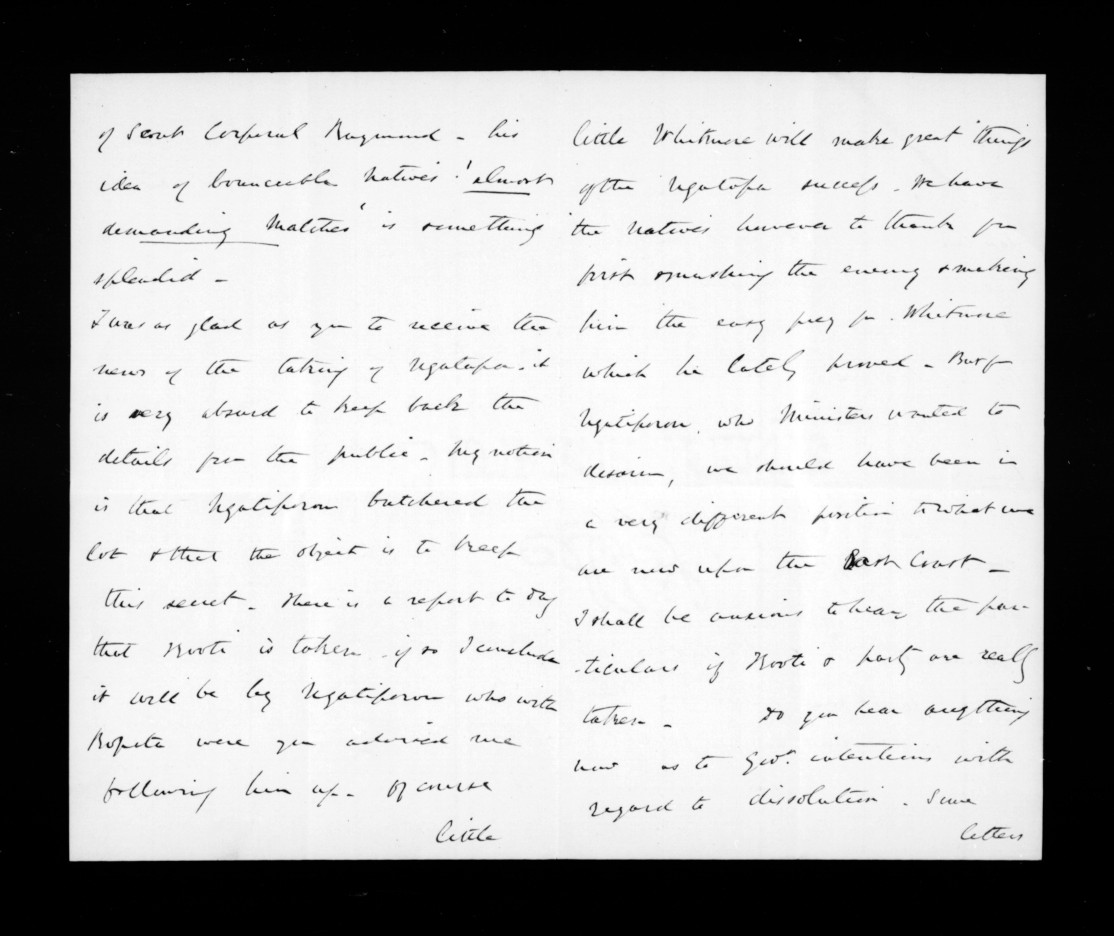 of Scout Corporal Raymond - his
idea of bounceable Natives 'almost
demanding Matches' is something
splendid -
I was as glad as you to receive the
news of the taking of Ngatapa. it
is very absurd to keep back the
details from the public - My notion
is that Ngatiporou butchered the
lot & that the object is to keep
this secret - There is a report to day
that Kooti is taken if so I conclude
it will be by Ngatiporou who with
Ropata were you advised me
following him up - Of course
little
little Whitmore will make great things
of the Ngatapa success. We have
the Natives however to thank for
first smashing the enemy & making
him the easy prey for Whitmore
which he lately proved - But for
Ngatiporou, who Ministers wanted to
disarm, we should have been in
a very different position to what we
are now upon the East Coast -
I shall be anxious to hear the par-
ticulars if Kooti & party are really
taken - Do you hear anything
now as to Govt. intentions with
regard to dissolution. Some
letters